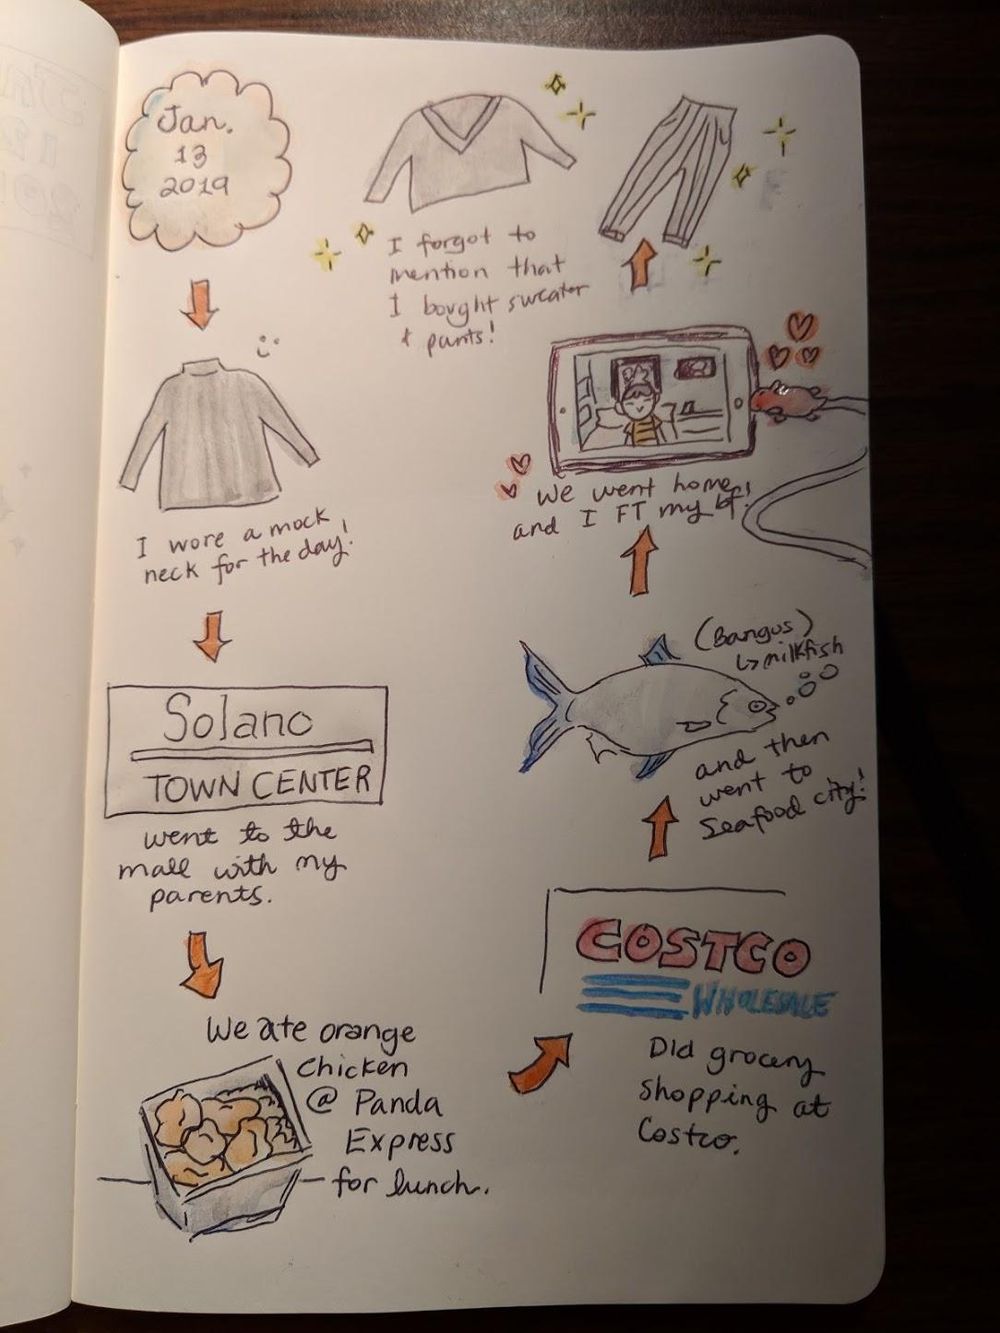 Jan.
13
2019
I wore a mock
neck for the day!
Solano
TOWN CENTER
went to the
mall with my
parents.
We ate orange
chicken
@ Panda
Express
for lunch.
COSTCO
WHOLESALE
Did grocery
shopping at
Costco.
(Bangus)
↳ milkfish
and then
went to
Seafood city!
We went home
and I FT my bf!
I forgot to
mention that
I bought sweater
& pants!